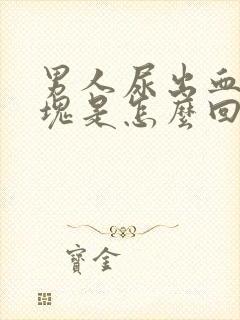 男人尿出血
塊是怎麼回
寶金